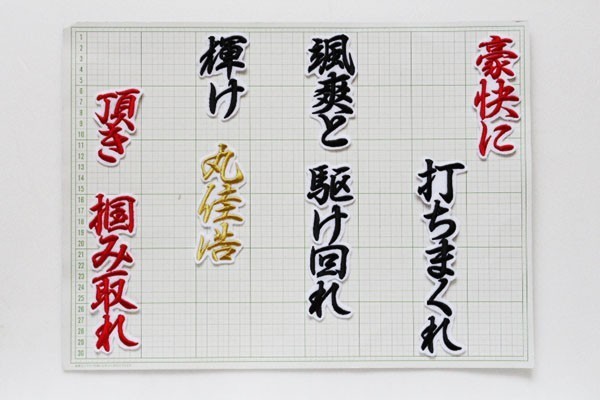 豪快に
打ちまくれ
颯爽と 駆け回れ
輝け 丸佳浩
頂き 掴み取れ